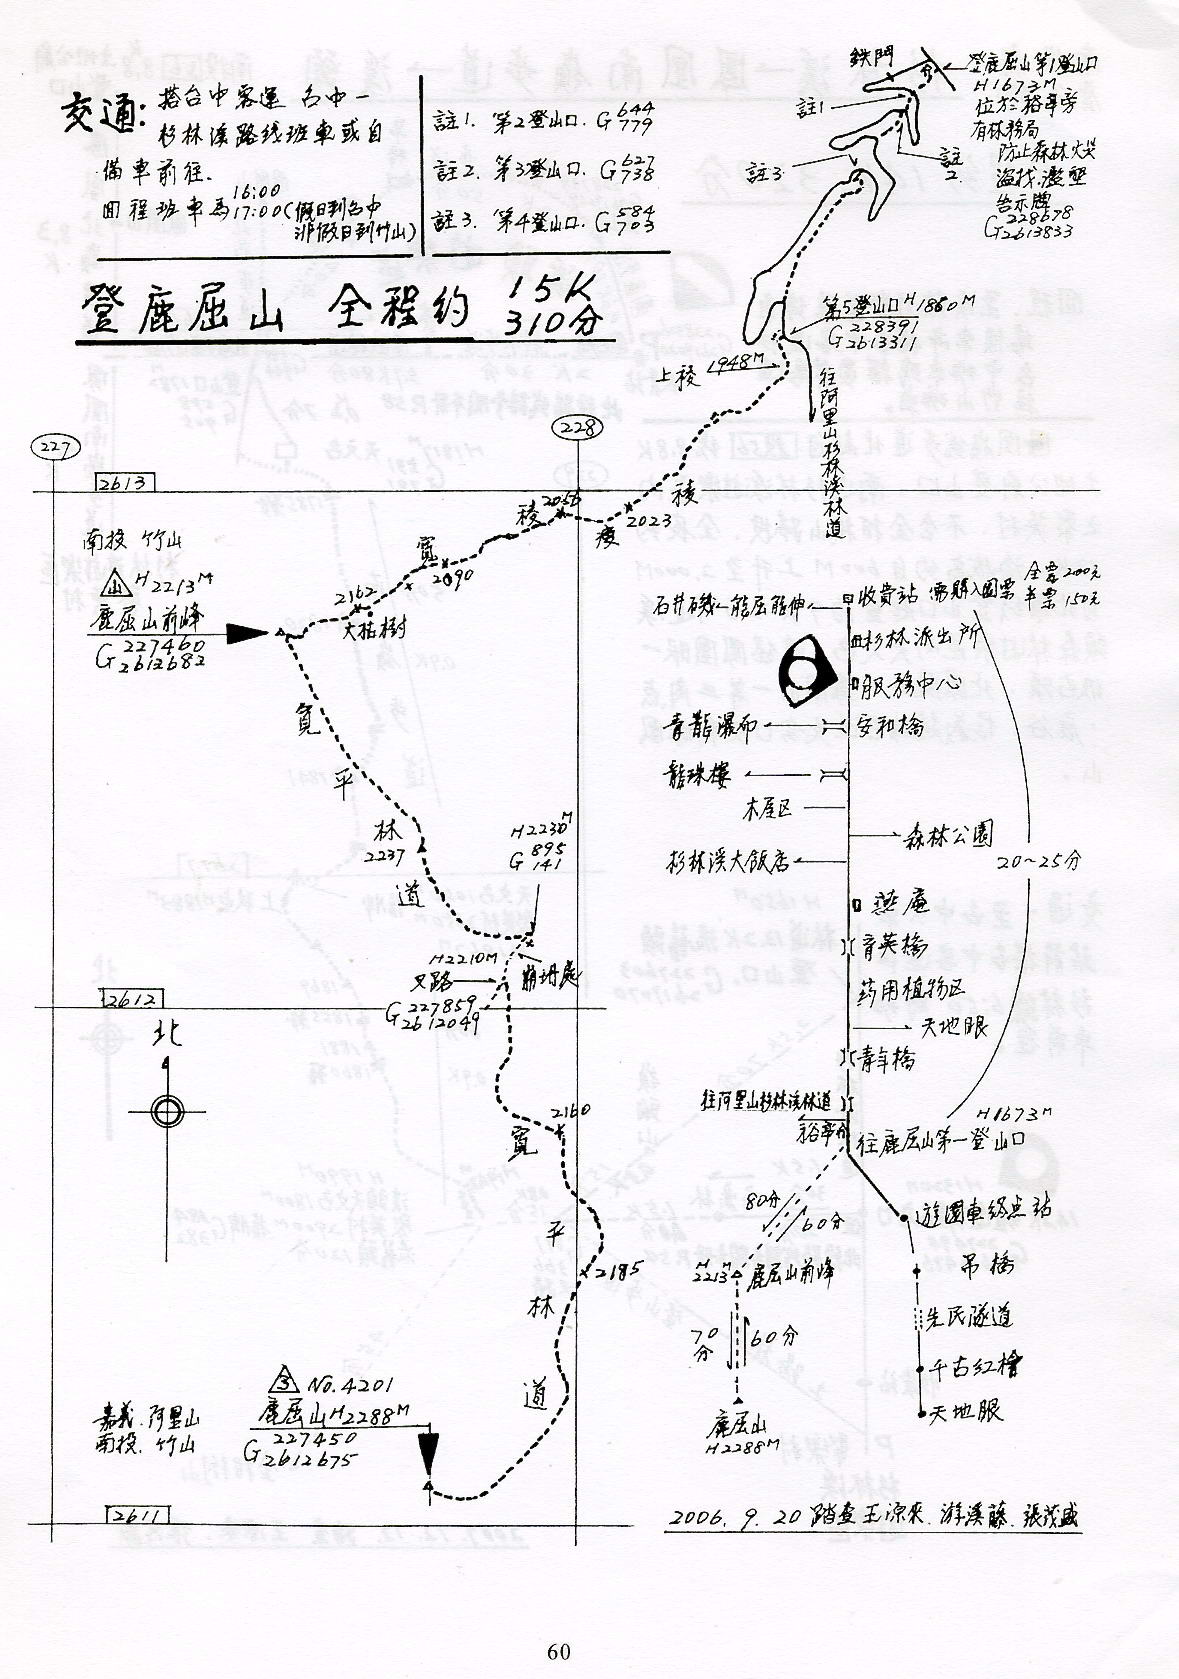 交通:
搭台中客運 台中—
杉林溪路线班車或自
備車前往.
回程班車為 16:00
17:00(假日到台中
非假日到竹山)
註1. 第2登山口. G 644
779
註2. 第3登山口. G 627
738
註3. 第4登山口. G 584
703
登鹿屈山 全程約 15K
310分
鉄門
登鹿屈山第1登山口
H1673M
位於裕亭旁
有林務局
防止森林火災
盜伐.濫墾
告示牌
G 228678
2613833
註1
註2
註3
第5登山口 H1860M
G 228391
2613311
上稜 1948M
往阿里山杉林溪林道
227
228
2613
2056
稜
瘦
稜
2023
寬
2090
2162
大枯樹
南投 竹山
山 H2213M
鹿屈山前峰
G 227460
2612682
寬
平
林
道
2237
H2230M
G 895
141
H2210M
叉路
崩坍處
G 227859
2612049
2612
北
2160
寬
平
林
道
2185
嘉義.阿里山
南投.竹山
3 No.4201
鹿屈山H2288M
G 227450
2612675
2611
石井磯
能屈能伸
收費站 需購入園票 全票200元
半票150元
杉林派出所
服務中心
青龍瀑布
安和橋
龍珠樓
木屋区
森林公園
杉林溪大飯店
20~25分
燕庵
育英橋
药用植物区
天地眼
青年橋
往阿里山杉林溪林道
裕亭
H1673M
往鹿屈山第一登山口
80分
60分
遊園車終点站
H
2213M 鹿屈山前峰
吊橋
70分
60分
先民隧道
千古紅檜
天地眼
鹿屈山
H2288M
2006. 9. 20 踏查王源來.游溪藤.張茂盛
60